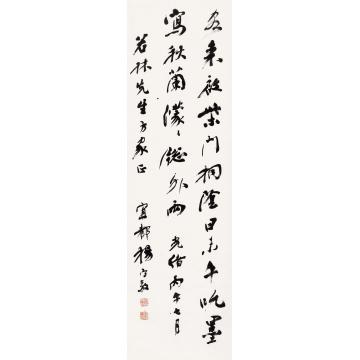 客來啟柴門桐陰日未午吮墨
寫秋蘭濛〻窗外雨 光緒丙午七月
若林先生方家正 宜都楊守敬